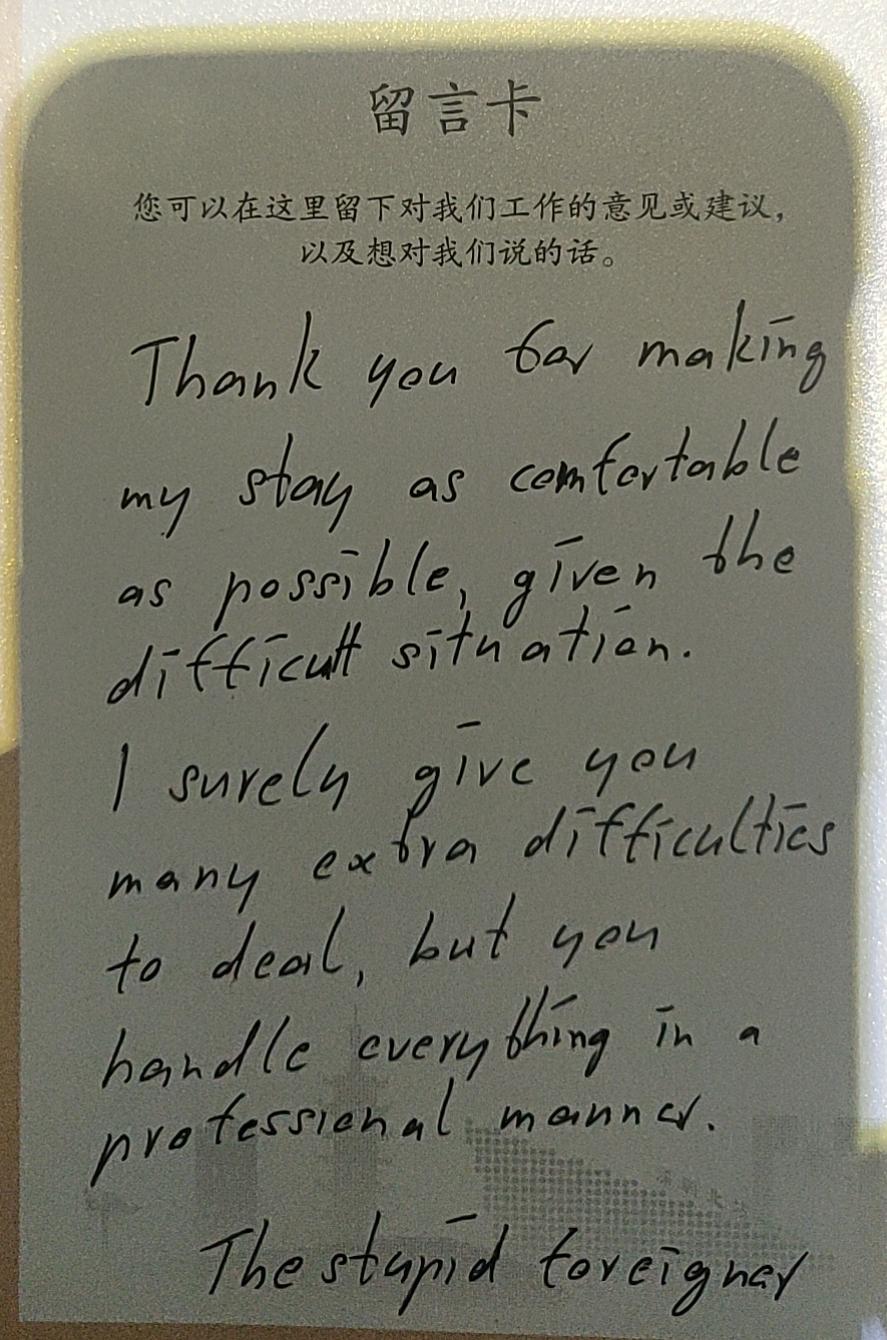 留言卡
您可以在这里留下对我们工作的意见或建议，
以及想对我们说的话。
Thank you for making
my stay as comfortable
as possible, given the
difficult situation.
I surely give you
many extra difficulties
to deal, but you
handle everything in a
professional manner.
The stupid foreigner